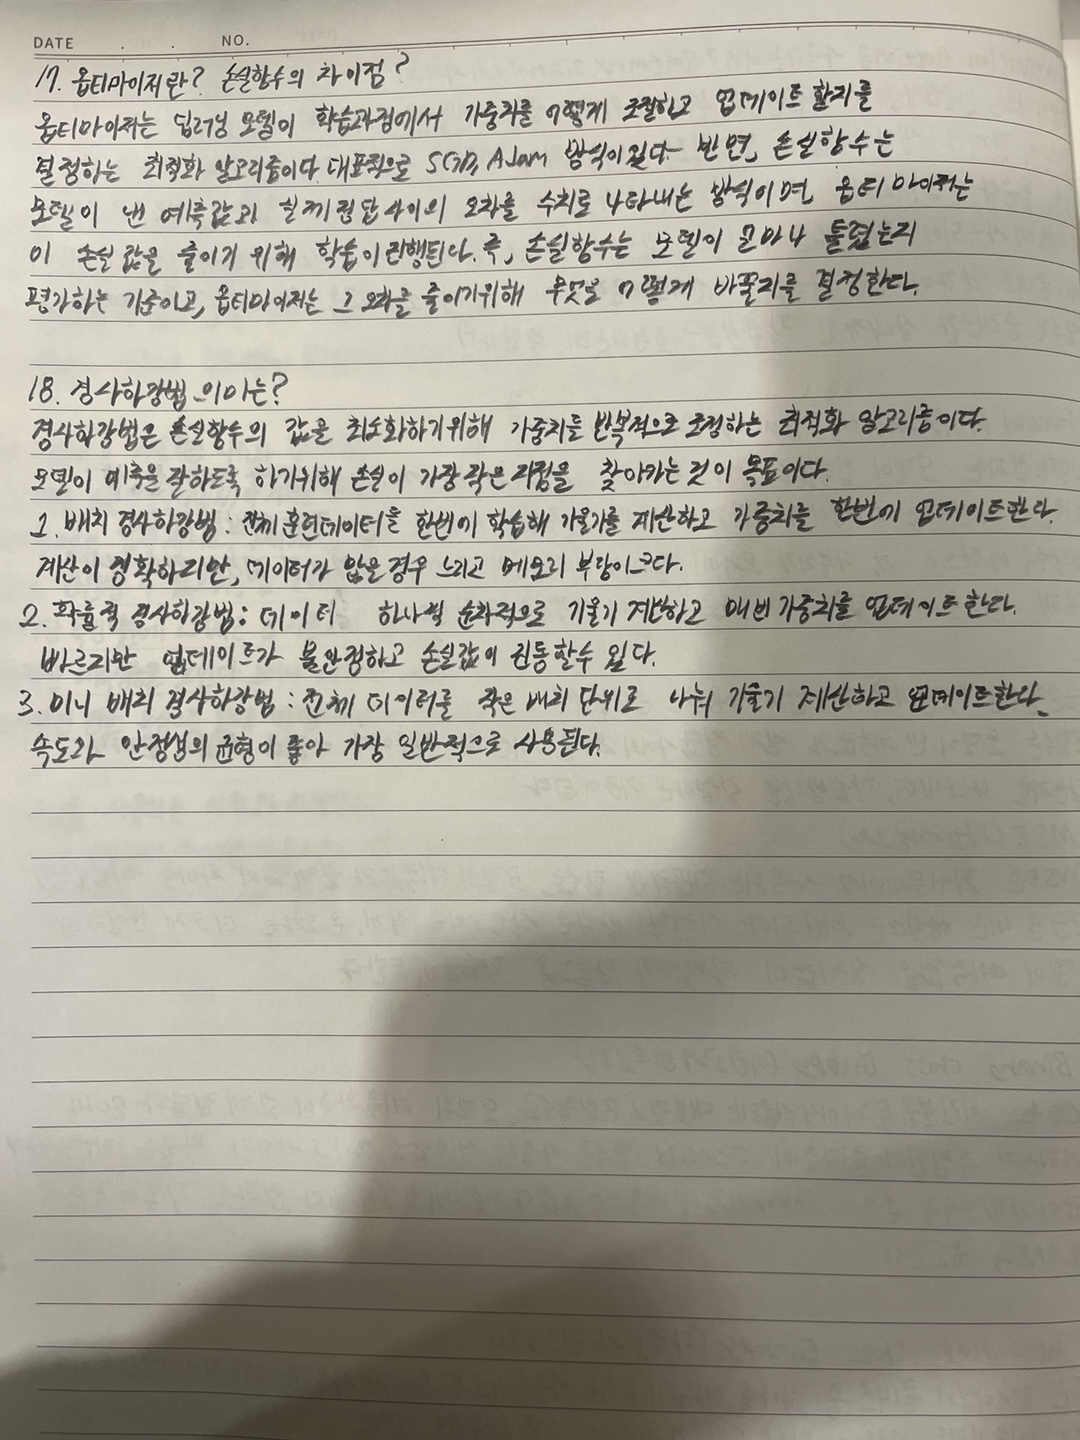 DATE . . NO.
17. 옵티마이저란? 손실함수의 차이점?
옵티마이저는 딥러닝 모델이 학습과정에서 가중치를 어떻게 조절하고 업데이트 할지를
결정하는 최적화 알고리즘이다. 대표적으로 SGD, Adam 방식이 있다. 반면, 손실함수는
모델이 낸 예측값과 실제 정답사이의 오차를 수치로 나타내는 방식이며, 옵티마이저는
이 손실 값을 줄이기 위해 학습이 진행된다. 즉, 손실함수는 모델이 얼마나 틀렸는지
평가하는 기준이고, 옵티마이저는 그 오차를 줄이기위해 무엇을 어떻게 바꿀지를 결정한다.
18. 경사하강법 의미는?
경사하강법은 손실함수의 값을 최소화하기위해 가중치를 반복적으로 조정하는 최적화 알고리즘이다.
모델이 예측을 잘하도록 하기위해 손실이 가장 작은 지점을 찾아가는 것이 목표이다.
1. 배치 경사하강법 : 전체 훈련데이터를 한번에 학습해 기울기를 계산하고 가중치를 한번에 업데이트한다.
계산이 정확하지만, 데이터가 많을 경우 느리고 메모리 부담이 크다.
2. 확률적 경사하강법 : 데이터 하나씩 순차적으로 기울기 계산하고 매번 가중치를 업데이트한다.
빠르지만 업데이트가 불안정하고 손실값이 진동할수 있다.
3. 미니 배치 경사하강법 : 전체 데이터를 작은 배치 단위로 나눠 기울기 계산하고 업데이트한다.
속도와 안정성의 균형이 좋아 가장 일반적으로 사용된다.